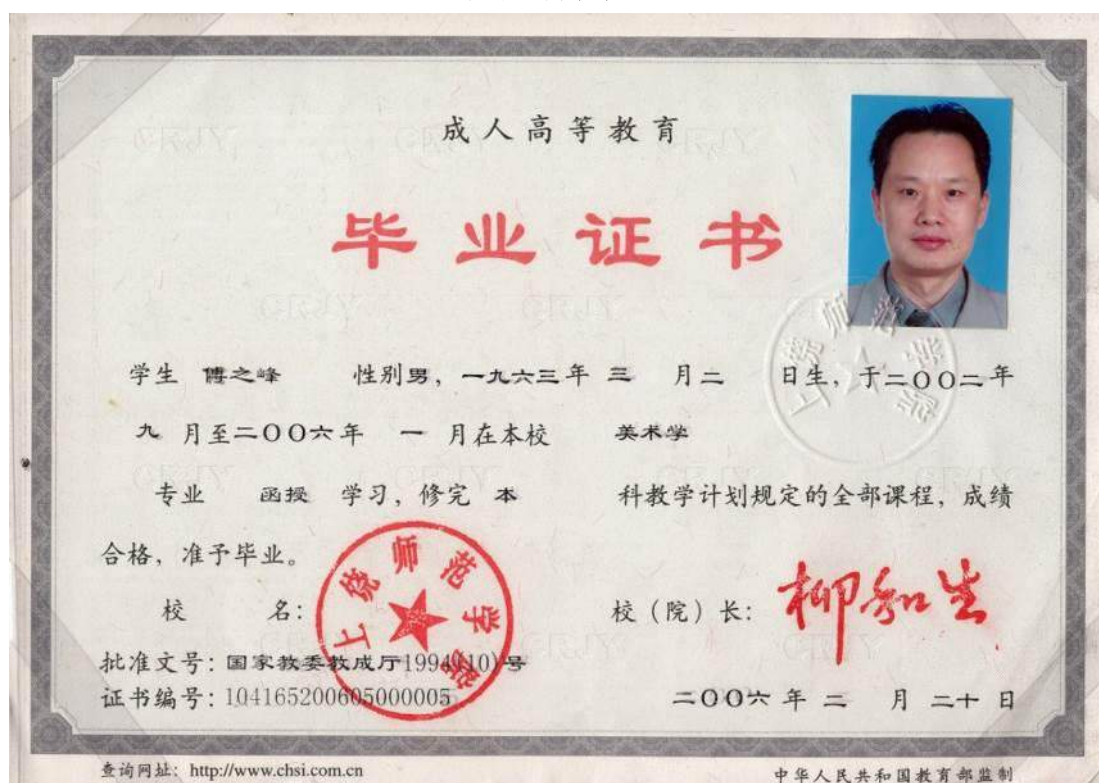 成人高等教育
毕业证书
学生 傅之峰 性别 男，一九六三年 三 月 二 日生，于二〇〇二年
九 月至二〇〇六年 一 月在本校 美术学
专业 函授 学习，修完 本 科教学计划规定的全部课程，成绩
合格，准予毕业。
校 名：
上饶师范学院
校（院）长：柳和生
批准文号：国家教委教成厅1994(10)号
证书编号：104165200605000005
二〇〇六年 二 月 二十 日
查询网址：http://www.chsi.com.cn
中华人民共和国教育部监制